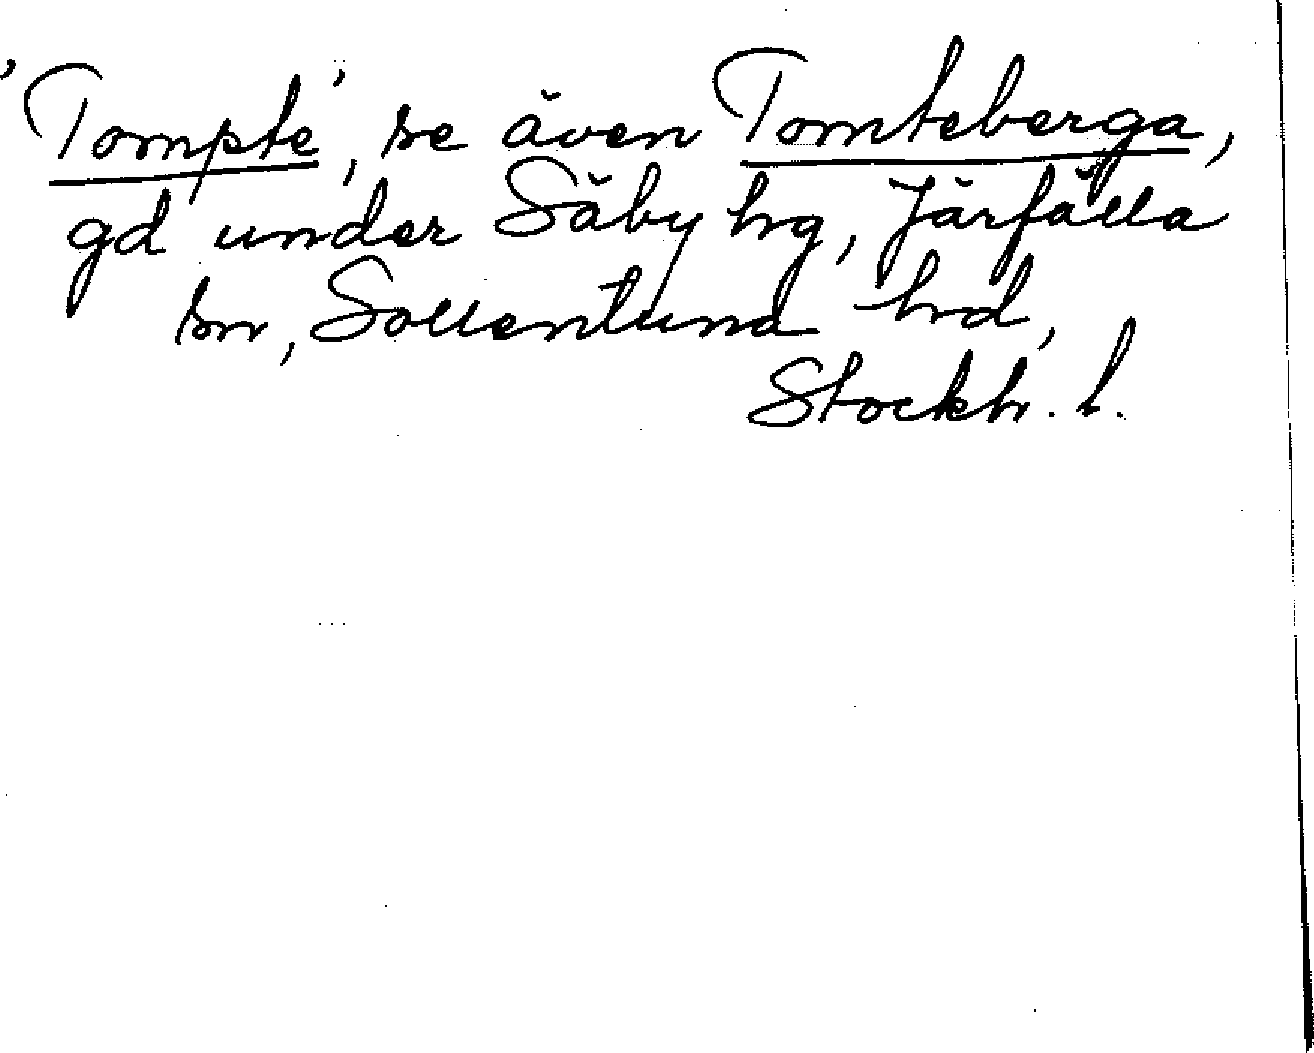 'Tompte', se även Tomteberga,
gd under Säby hg, Järfälla
sn, Sollentuna hrd,
Stockh. l.